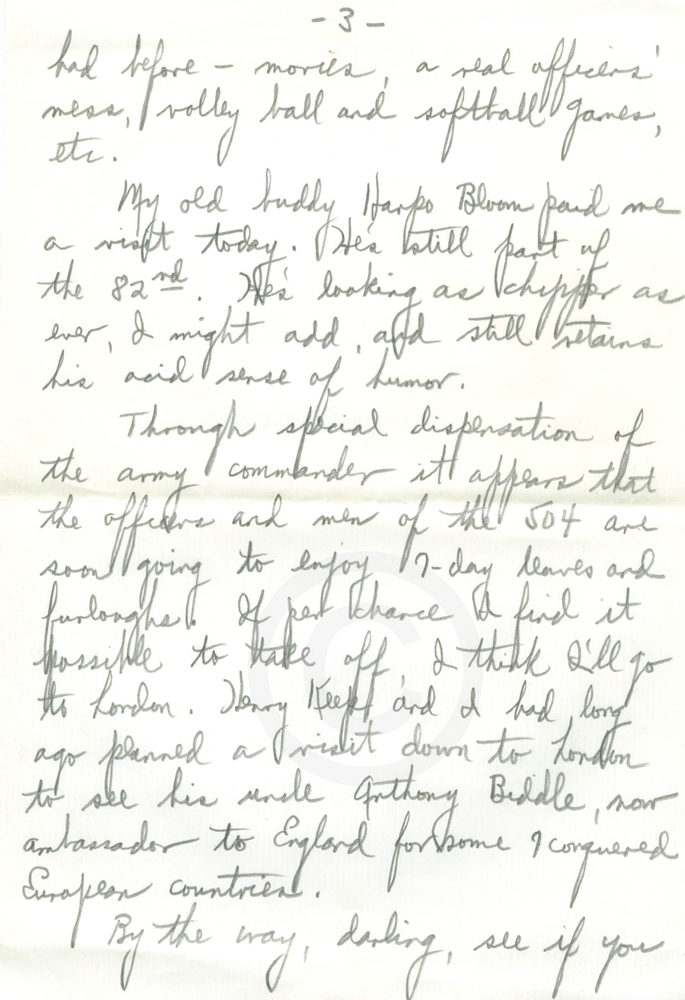 - 3 -
had before - movies, a real officers'
mess, volley ball and softball games,
etc.
My old buddy Harpo Bloom paid me
a visit today. He's still part of
the 82nd. He's looking as chipper as
ever, I might add, and still retains
his acid sense of humor.
Through special dispensation of
the army commander it appears that
the officers and men of the 504 are
soon going to enjoy 7-day leaves and
furloughs. If per chance I find it
possible to take off, I think I'll go
to London. Henry Keep and I had long
ago planned a visit down to London
to see his uncle Anthony Biddle, now
ambassador to England for some 9 conquered
European countries.
By the way, darling, see if you